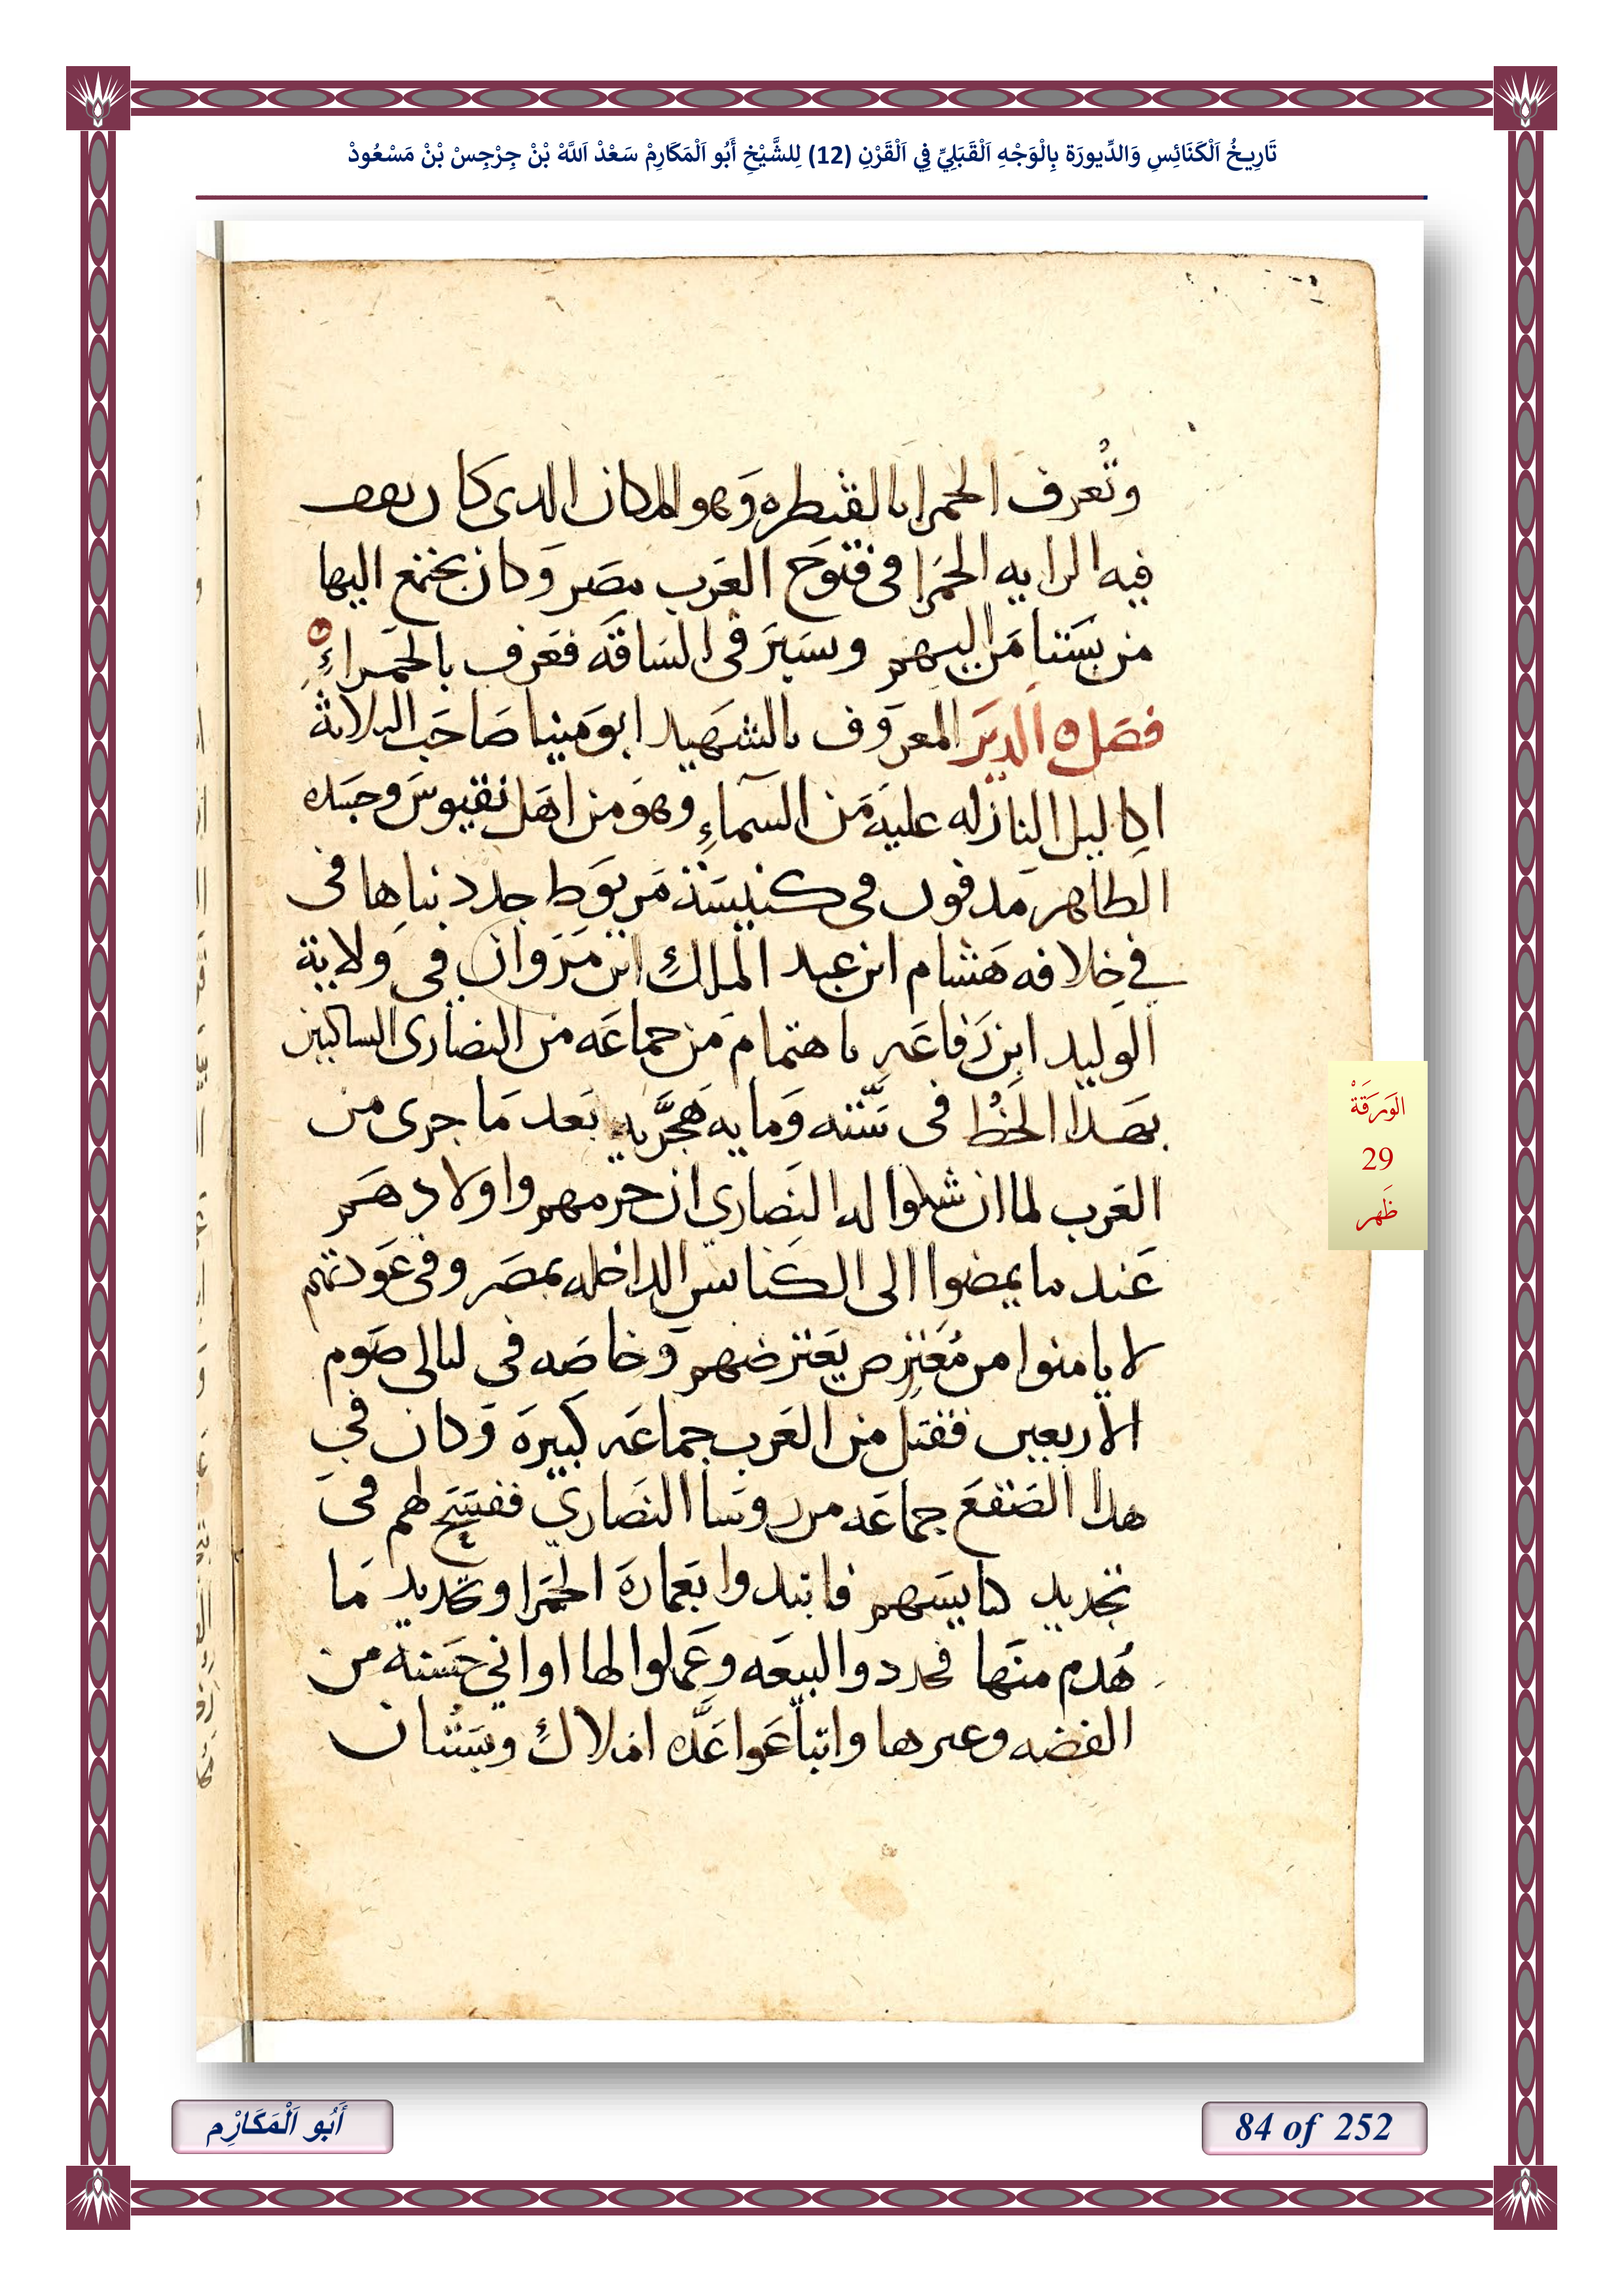 تَارِيخُ اَلْكَنَائِسِ وَالدِّيورَة بِالْوَجْهِ اَلْقَبَلِيِّ فِي اَلْقَرْنِ (12) لِلشَّيْخِ أَبُو اَلْمَكَارِمْ سَعْدْ اَللَّهْ بْنْ جِرْجِسْ بْنْ مَسْعُودْ
وتُعرف الحمرا بالقنطره وَهو المكان الدى كان يقف
فيه الرايه الحمَرا فى فتوحَ العَرب مصَر وَكان يجتمع اليها
من يستنا مَن اليهم وسَيرَ فى السَاقَه فعَرف بالحمراءِ
فصَل ٥ الديَر المعرَوف بالشهَيد ابو مَينا صَاحَب التلاتة
اكاليل النازله عليهَ مَن السَماءِ وهوَ من اهَل نقيوسَ وجسَده
الطاهر مَدفون فى كنيسَة مَريوَط جدد بناها فى
في خلافه هَشام ابن عبد الملكِ ابن مَرَوان فى وَلاية
الوليد ابن رَفاعَه باهتمام مَن جماعَه من النصَارى الساكنين
بهَدا الخُط فى سَنته وَمايه هَجَّريه بَعد مَا جرى من
العَرب لما ان شكوا له النَصارى ان حرمهم واولادهَم
عَند ما يمضوا الى الكَنايس الداخله بمصَر وفى عَودتهم
لا يامنوا من مُعَترِص يَعترضهم وَخاصَه فى ليالى صَوم
الاربعين فقتل من العَرب جماعَه كبيرَة وَكان في
هدا الصَقعَ جماعَه من روسَا النصَاري ففسَح لهم فى
تجديد كنايسَهم فابتدوا بَعمارةَ الحمَرا وتجديد مَا
هُدم منَها فجددوا البيعَه وعَملوا لها اواني حسَنة من
الفضه وغيرها وابتاعَوا عَدَّه املاكٍ وبسَتُان
الوَرَقَةْ
29
ظَهر
أَبُو اَلْمَكَارْم
84 of 252